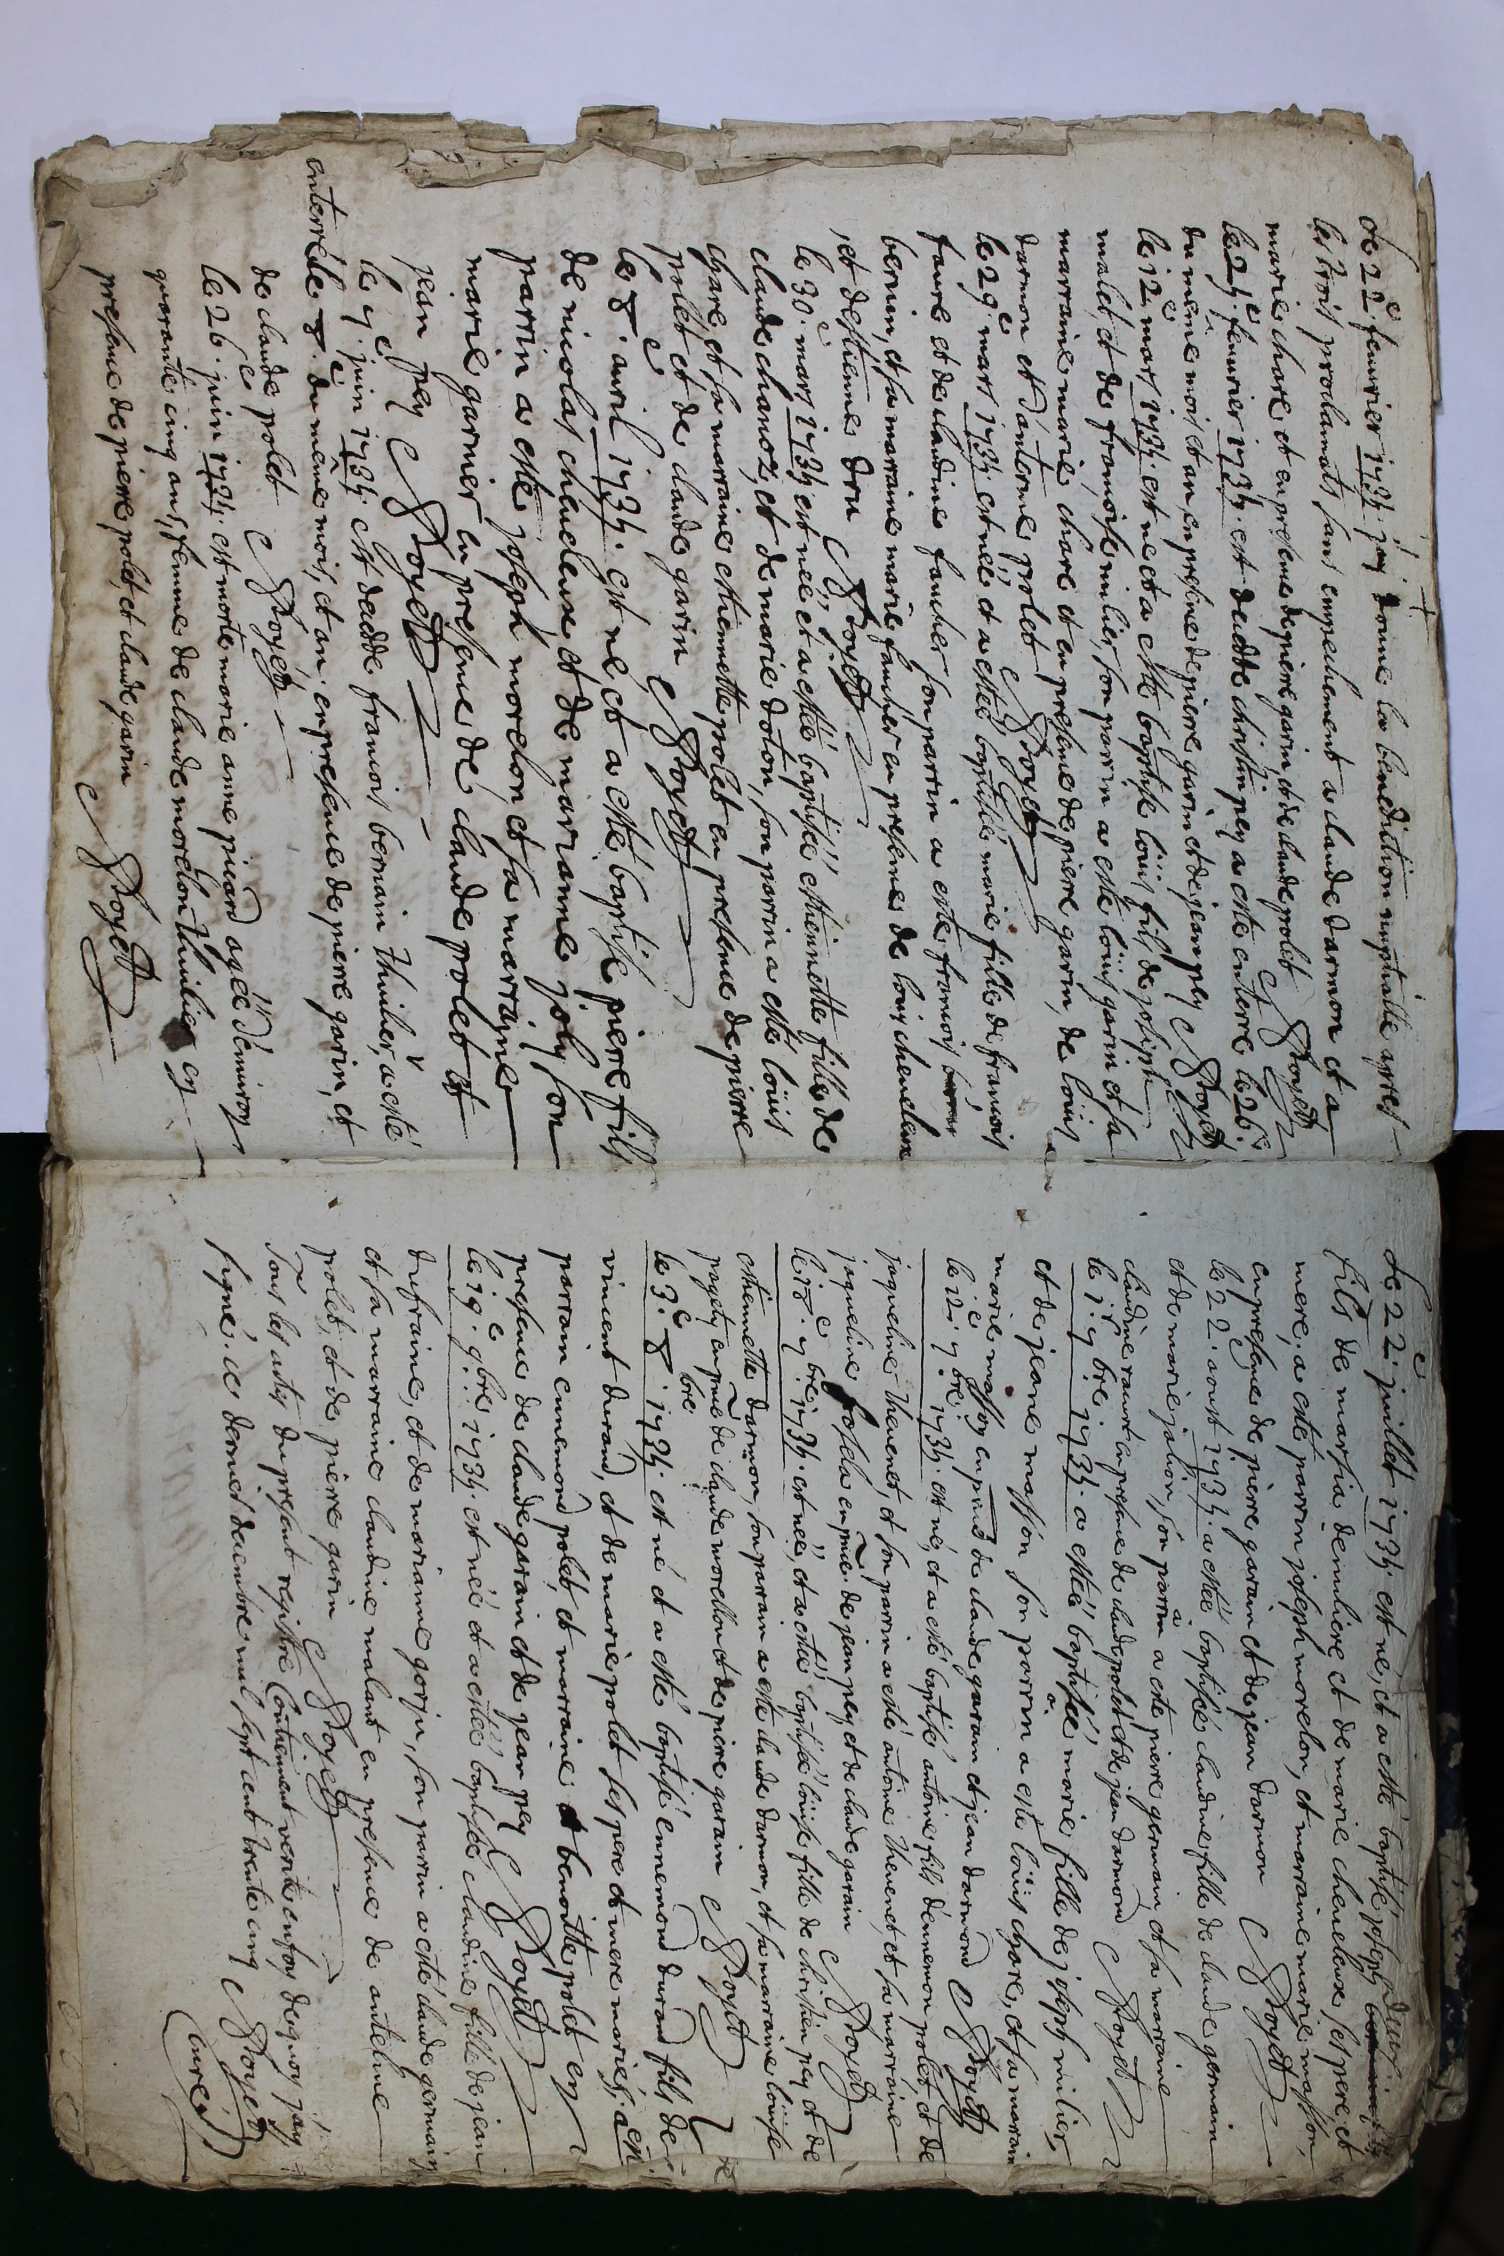 le 22e feuurier 1734. j'ay donne la benediction nuptialle apres
les trois proclamats sans empechement a claude darmon et a
marie chare, et en presence de pierre garin et de claude polet Royet
le 24e feuurier 1734. est decedé christin pey a esté enterré le 26e
du meme mois et an, en presence de pierre garin et de jean pey Royet
le 12e mars 1734. est né et a esté baptisé loüis fils de joseph
malet, et de françoise milier, son parrin a esté loüis garin et sa
marraine marie chare et en presence de pierre garin, de loüis
darmon et d'antoine polet Royet
le 29e mars 1734. est neé et a esteé baptisée marie fille de françois
faure et de claudine faucher son parrin a esté françois
bernin, et sa marraine marie faucher en presence de louis cheueleux
et d'estienne dru Royet
le 30e mars 1734 est neé et a esteé baptisée estiennette fille de
claude chanoz, et de marie doton, son parrin a esté loüis
chare, et sa marraine estiennette polet en presence de pierre
pollet et de claude garin Royet
le 8e auril 1734. est né et a esté baptisé pierre fils
de nicolas cheueleux et de marianne joly son
parrin a esté joseph morelon et sa marraine
marie garnier en presence de claude polet et
jean pey Royet
le 7e juin 1734 est decedé françois bernain thuilier, a esté
enterré le 8e du même mois, et an. en presence de pierre garin, et
de claude polet Royet
le 26e juin 1734. est morte marie anne picard ageé d'enuiron
quarante cinq ans, femme de claude morelon thuilier en
presence de pierre polet et claude garin Royet
le 22e juillet 1734. est né, et a esté baptisé joseph
fils de marsia demiliere, et de marie cheueleux, ses pere, et
mere, a esté parrin joseph morelon, et marraine marie masson,
en presence de pierre garain et de jean darmon Royet
le 22. aoust 1734. a esteé baptisée claudine fille de claude germain
et de marie jalion, son parrin a esté pierre germain et sa marraine
claudine rauat en presence de claude polet et de jean darmon Royet
le 1er 7bre. 1734 a esteé baptiseé marie fille de joseph milier,
et de jeane masson son parrin a esté loüis chare, et sa marrain
marie masson en pnce de claude garain et jean darmon Royet
le 12e 7bre. 1734. est né, et a esté baptisé antoine fils d'ennemon polet, et de
jaqueline theuenet, et son parrin a esté antoine theuenet, et sa marraine
jaqueline en pnce. de jean pey, et de claude garain Royet
le 18e 7bre. 1734. est neé, et a esteé baptisée loüise fille de christin pey, et de
estiennette darmon, son parrain a esté claude darmon, et sa marraine loüise
pagety en pnce de claude morellon et de pierre garain Royet
le 3e 8bre 1734. est né et a esté baptisé ennemond durand fils de
vincent durand, et de marie polet ses pere et mere mariés. a esté
parrain ennemond polet, et marraine benoitte polet en
presence de claude garain et de jean pey Royet
le 19e 9bre 1734. est neé et a esteé baptisée claudine fille de jean
dufraine, et de marianne gorju, son parrin a esté claude germain
et sa marraine claudine malant en presence de antelme
polet, et de pierre garin Royet
Tous les actes du present registre contiennent verité en foy dequoy j'ay
signé. ce dernier decembre mil sept cent trente cinq Royet
curé